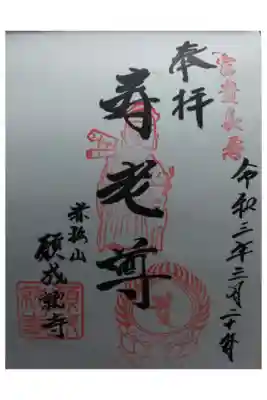 富貴長寿
奉拝
令和三年三月二十
寿老尊
山
願成就寺